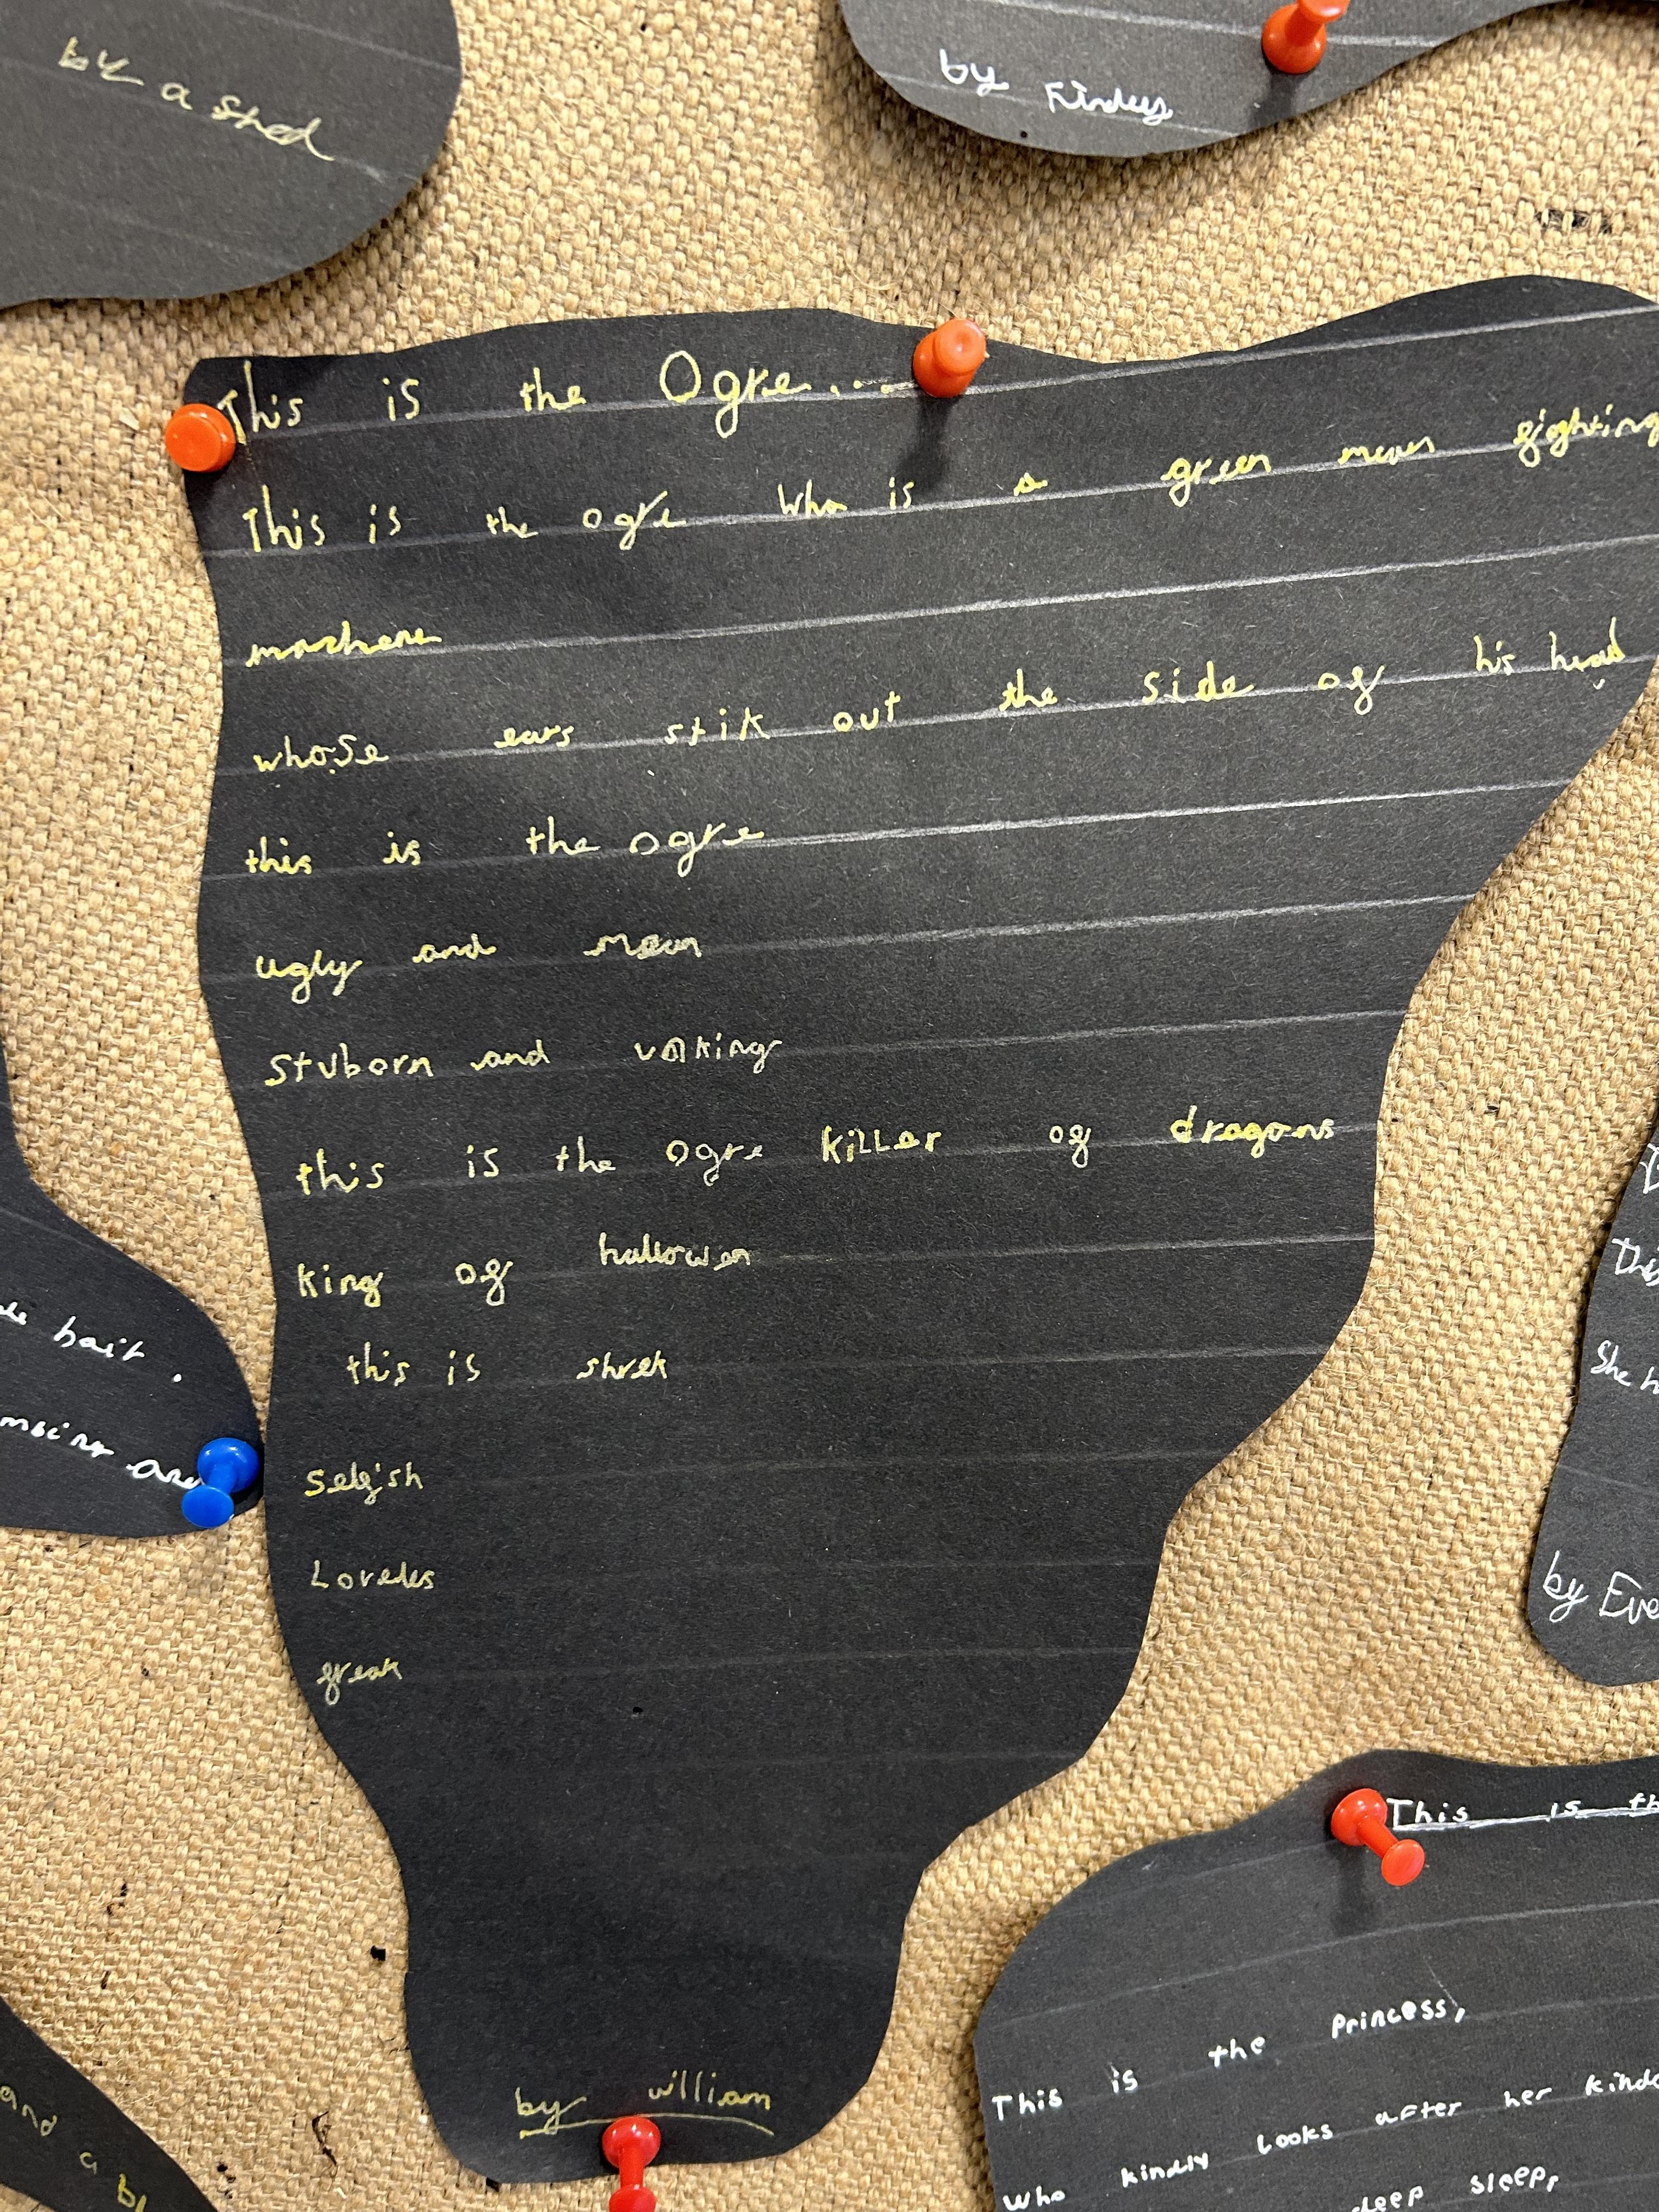 by a shed
by Findley
This is the Ogre....
This is the ogre who is a green mean fighting
machene
whose ears stik out the side of his head
this is the ogre
ugly and mean
stuborn and
this is the ogre killer of dragons
king of hallowen
this is shrek
selfish
Loveles
freak
by william
hait.
and
This
She h
by Eve
This is th
This is the Princess,
who kindly Looks after her kind
sleep sleep,
and a bl